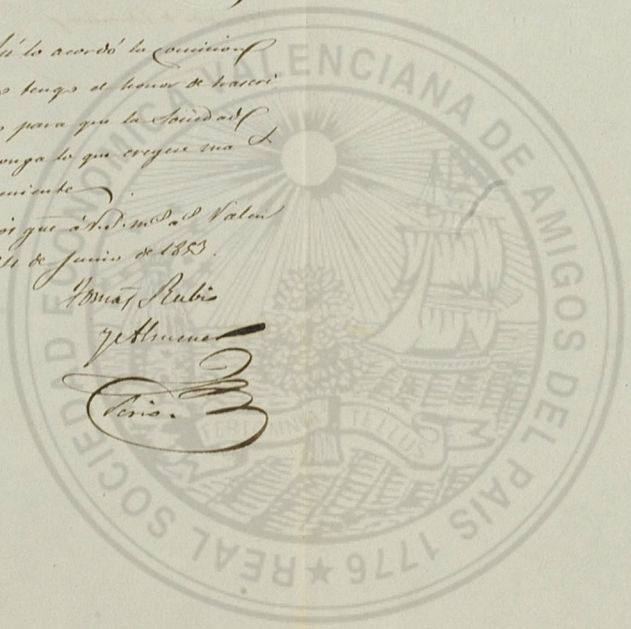 sí lo acordó la comision
tengo el honor de trascri
para que la Sociedad
onga lo que creyere ma s
eniente
que á Vd. m.s a.s Valen
de Junio de 1853.
Tomas Rubio
y Almenar
Srio.
REAL SOCIEDAD ECONOMICA VALENCIANA DE AMIGOS DEL PAIS 1776
FERT OMNIA TELLUS